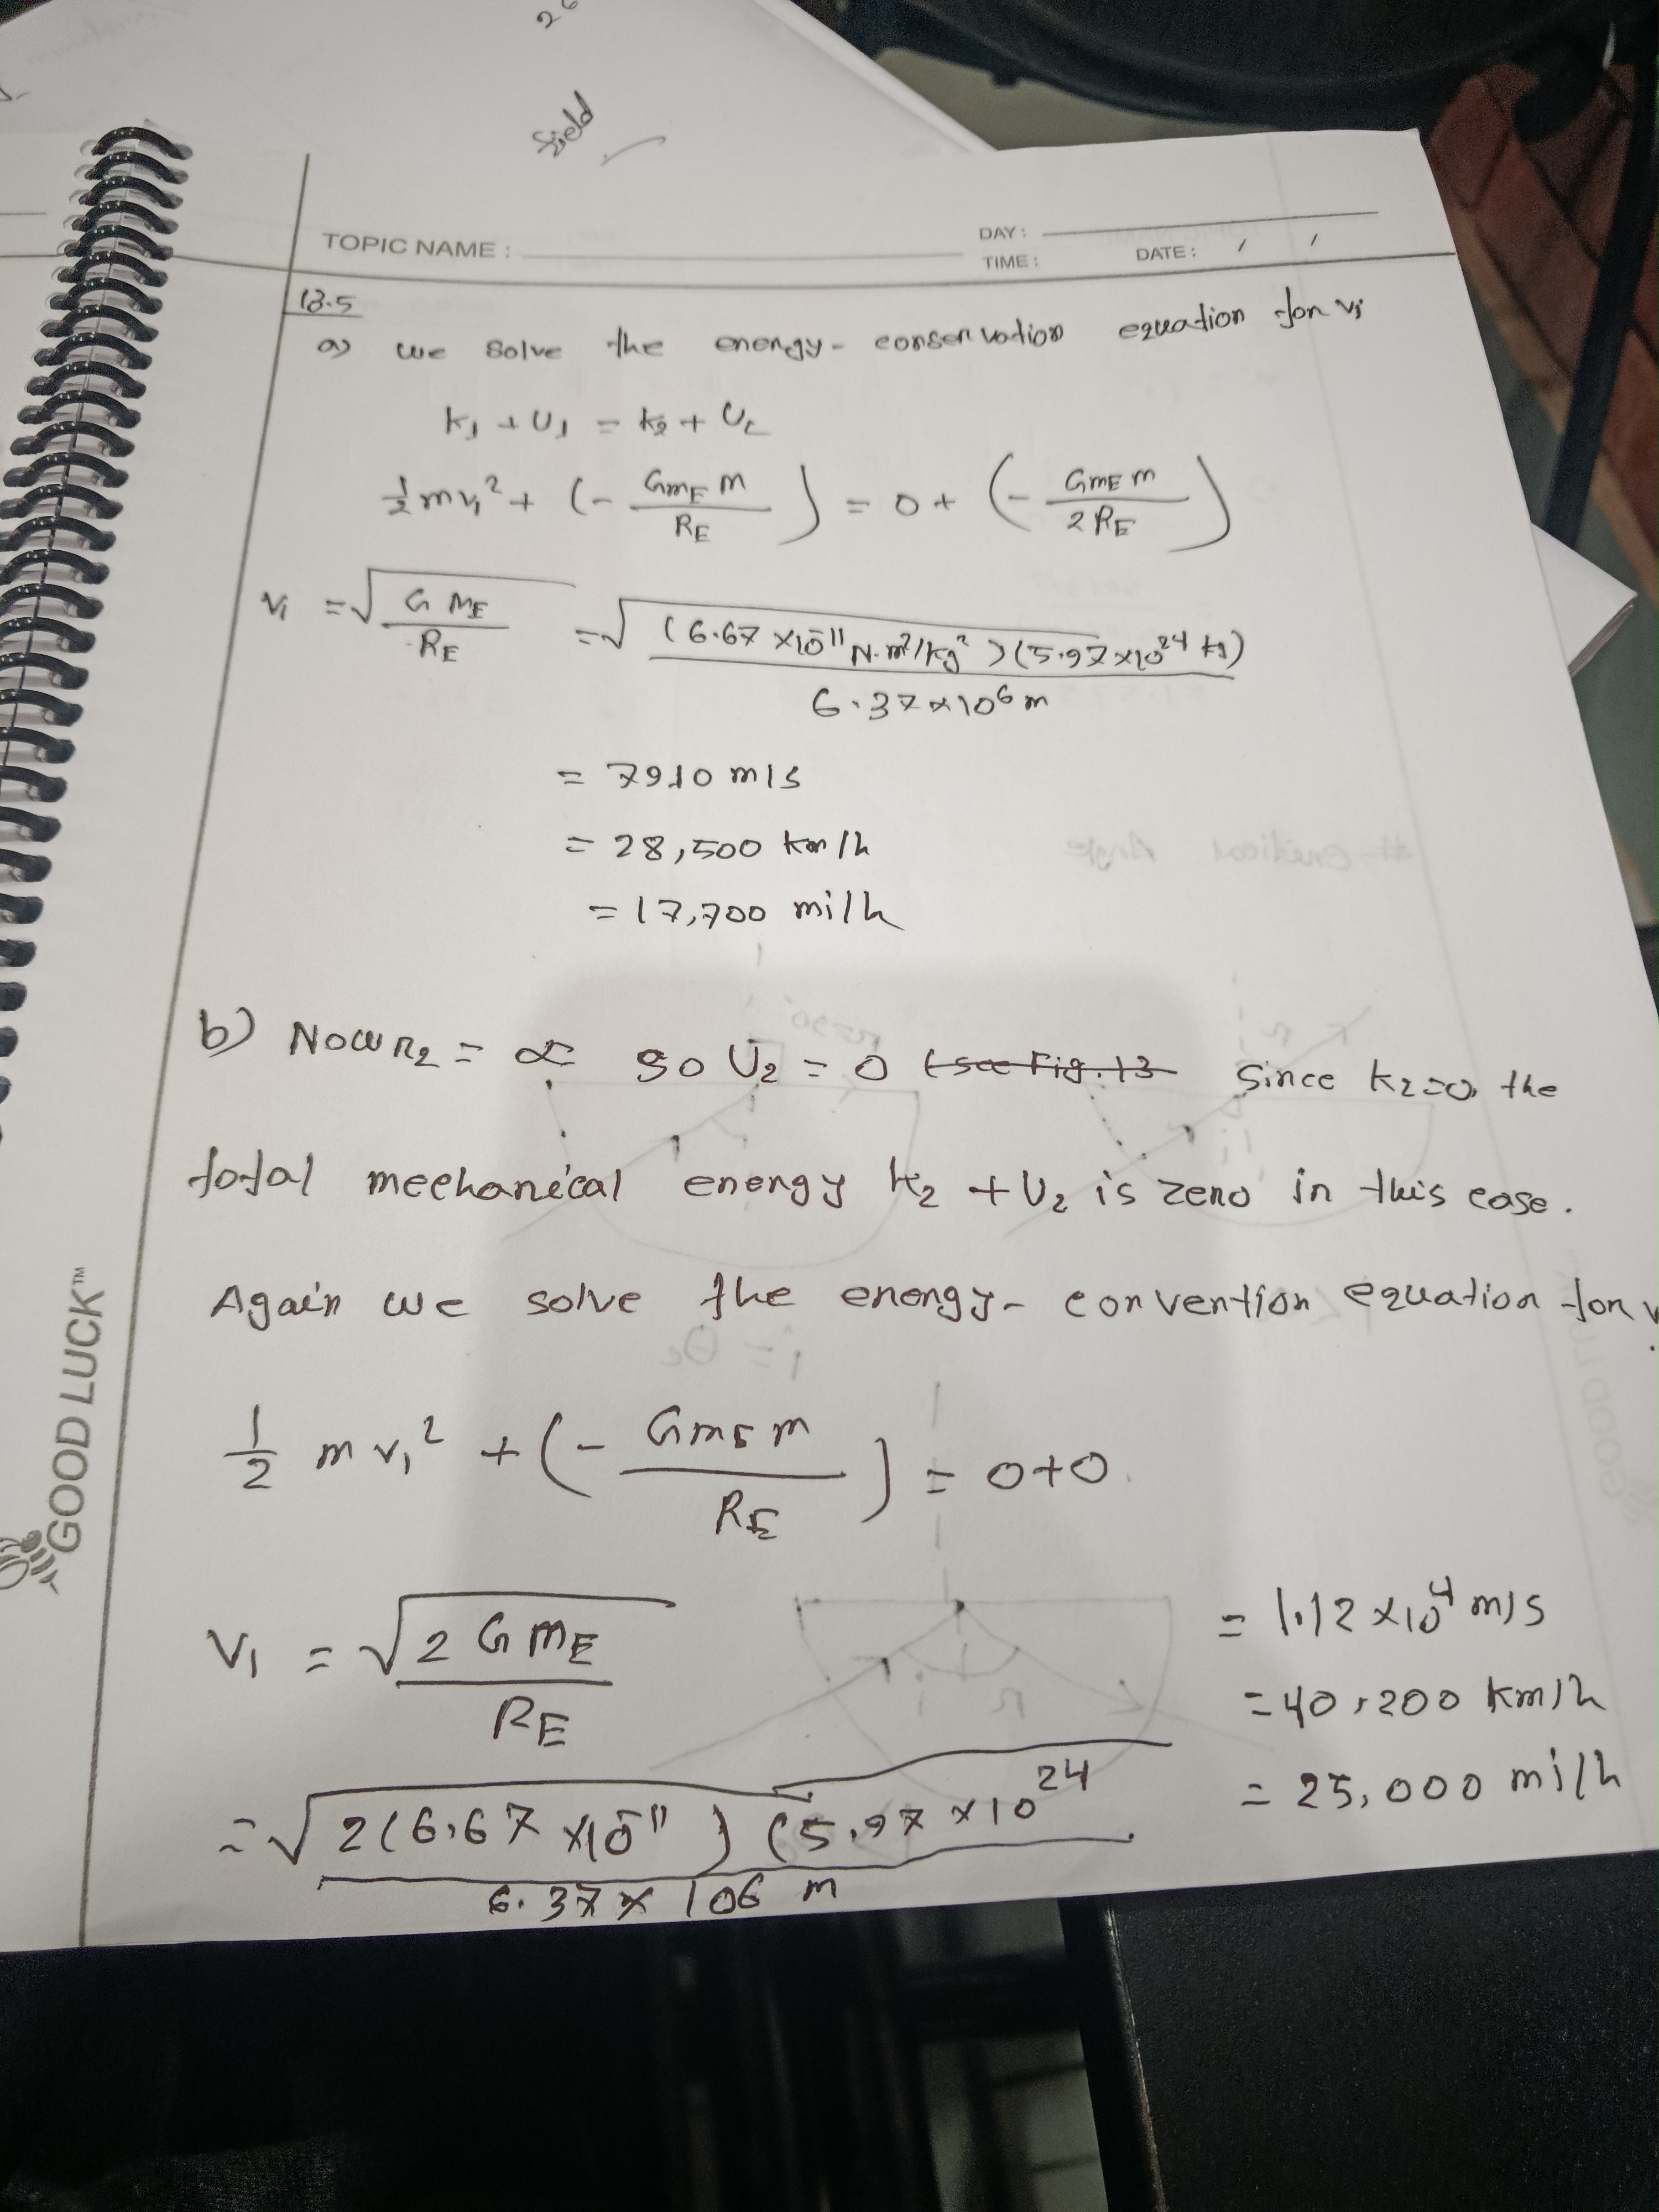 26
field
TOPIC NAME :
DAY :
TIME :
DATE : / /
13.5
a) we solve the energy-conservation equation for v₁
K₁ + U₁ = K₂ + U₂
½mv₁² + (- GmE m / RE) = 0 + (- GmE m / 2RE)
v₁ = √(G mE / RE) = √((6.67 ×10⁻¹¹ N.m²/kg²)(5.97×10²⁴ kg) / 6.37×10⁶ m)
= 7910 m/s
= 28,500 km/h
= 17,700 mi/h
b) Now r₂ = ∝ so U₂ = 0 (see Fig. 13 Since K₂=0, the
total mechanical energy K₂ + U₂ is zero in this case.
Again we solve the energy- convention equation for v
½ m v₁² + (- GmE m / RE) = 0+0
V₁ = √(2 G mE / RE)
= √(2(6.67 ×10⁻¹¹) (5.97 ×10²⁴ / 6.37 × 106 m)
= 1.12 ×10⁴ m/s
= 40,200 km/h
= 25,000 mi/h
GOOD LUCK™